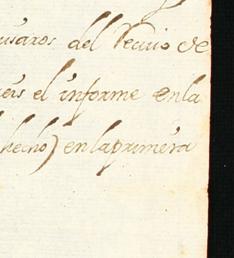 usaros del Vecino de
eis el informe en la
hecho) en la primera